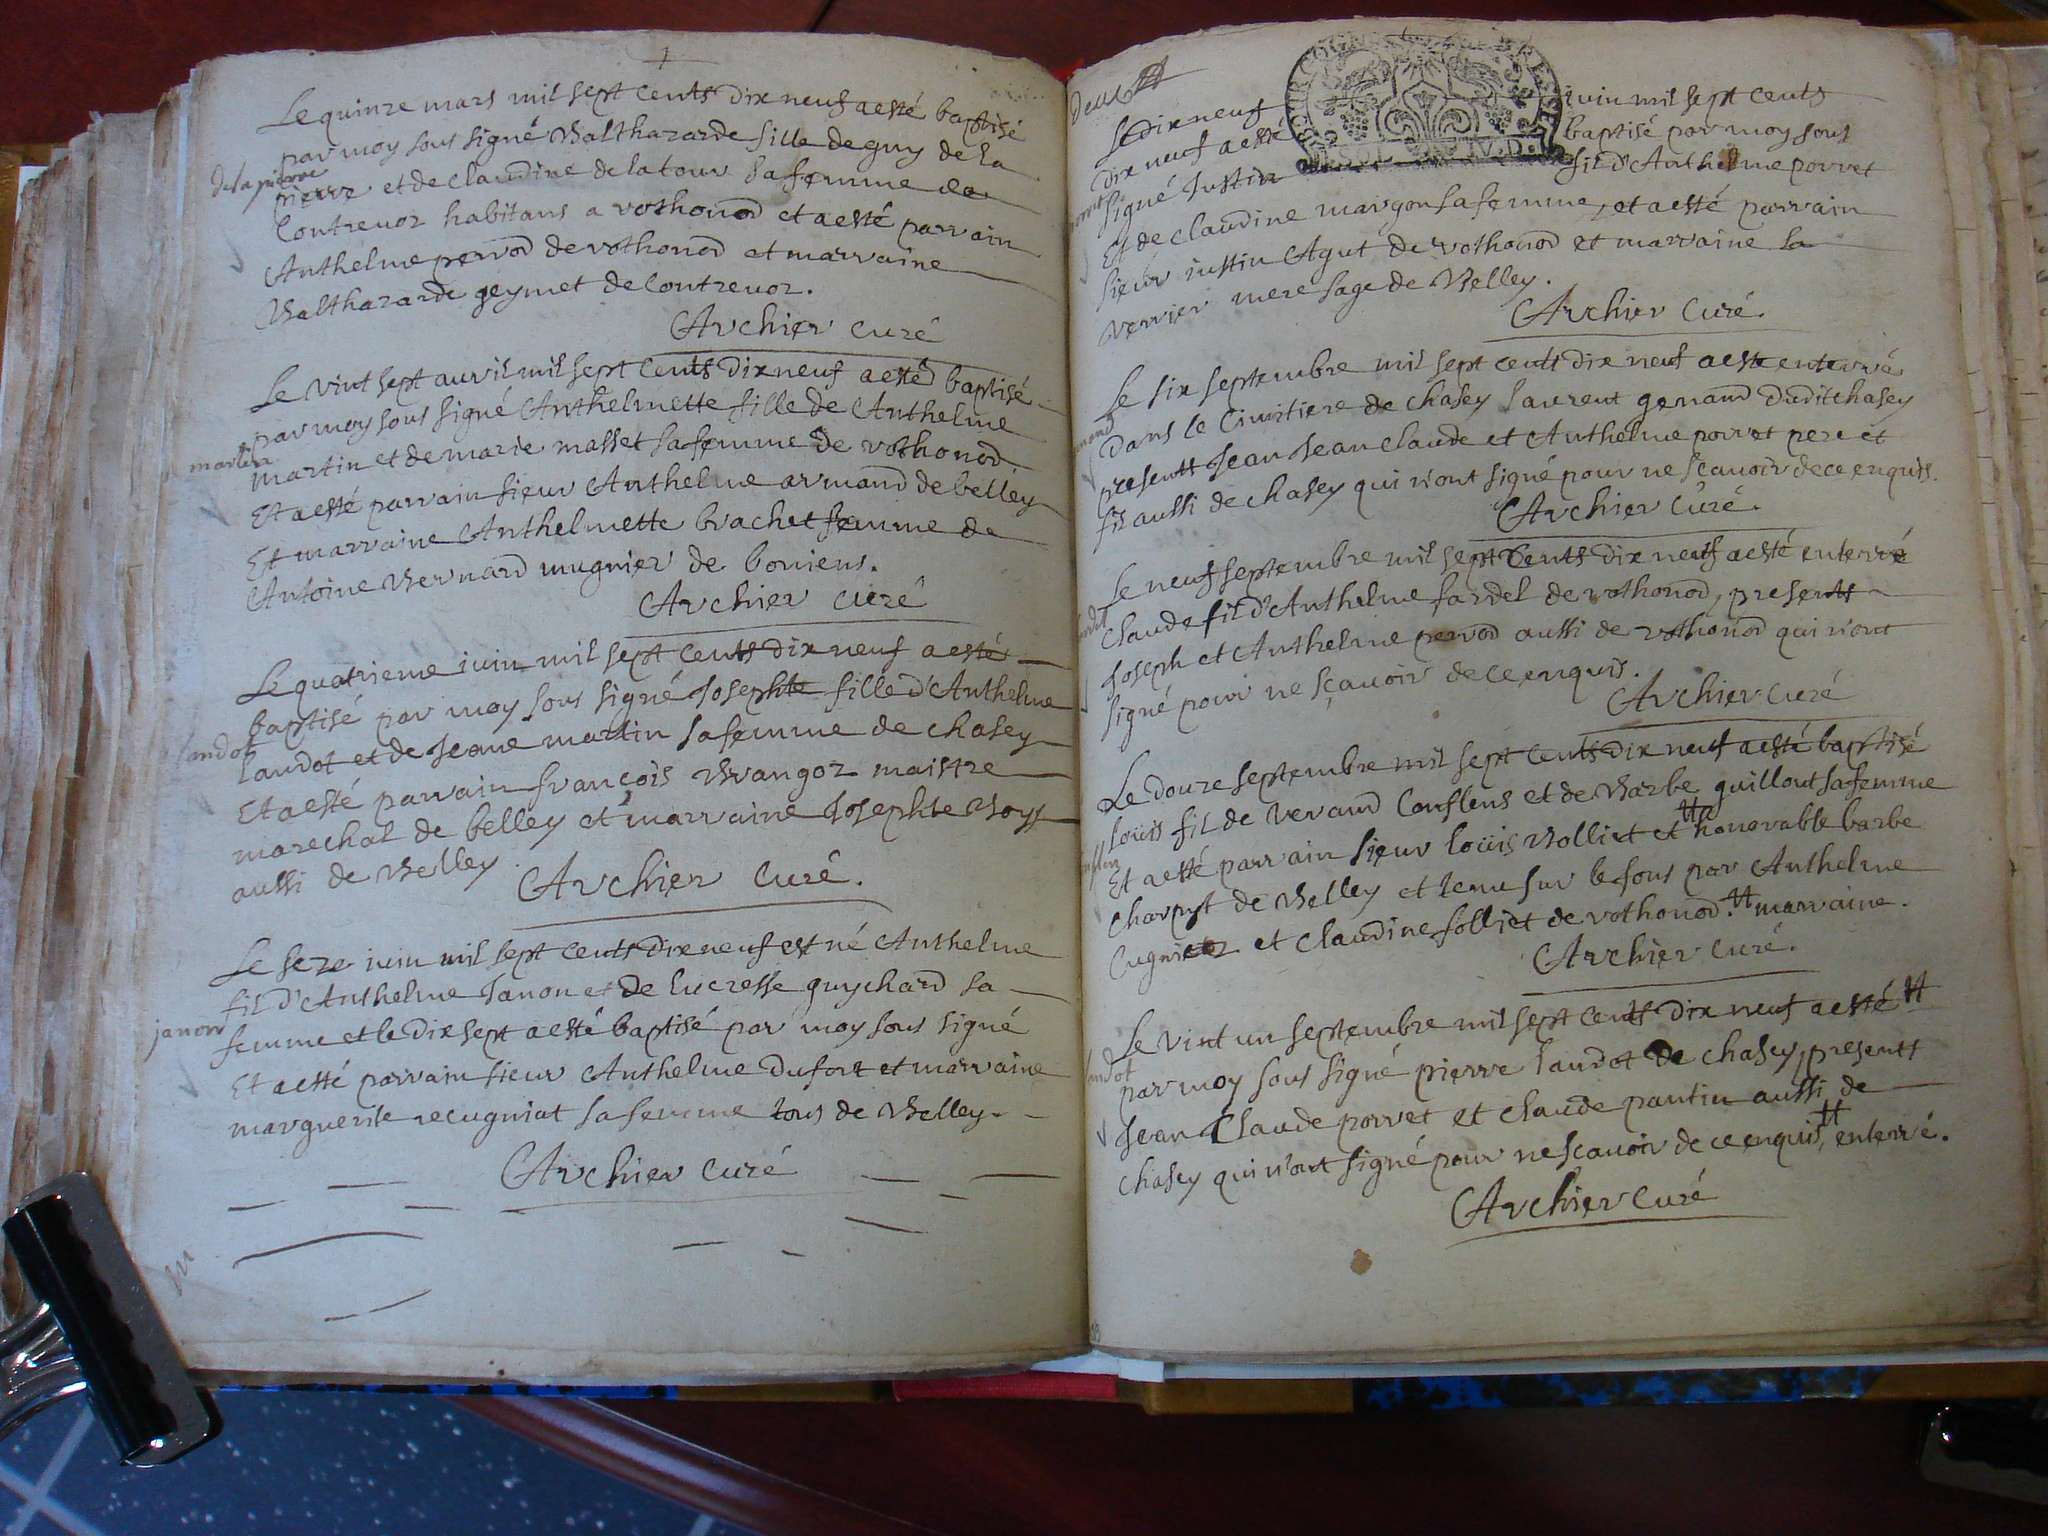 1
Le quinze mars mil sept cents dix neuf a esté baptisé
par moy sous signé Balthazarde fille de guy de la
de la pierre
pierre et de claudine de latour sa femme de
Contrevoz habitans a vothonod et a esté parrain
Anthelme perrod de vothonod et marraine
Balthazarde geymet de Contrevoz.
Archier curé
Le vint sept auril mil sept cents dix neuf a esté baptisé
par moy sous signé Anthelmette fille de Anthelme
martin
martin et de marie masset sa femme de vothonod
Et a esté parrain sieur Anthelme armand de belley
Et marraine Anthelmette brachet femme de
Antoine Bernard mugnier de boniens.
Archier curé
Le quatrieme iuin mil sept cents dix neuf a esté
baptisé par moy sous signé Josephte fille d'Anthelme
landot
landot et de Jeane martin sa femme de chasey
Et a esté parrain françois Brangoz maistre
marechal de belley et marraine Josephte Boyss
aussi de Belley
Archier curé.
Le seze iuin mil sept cents dix neuf est né Anthelme
fil d'Anthelme Janon et de lucresse guychard sa
janon
femme et le dix sept a esté baptisé par moy sous signé
Et a esté parrain sieur Anthelme Dufort et marraine
marguerite recugniat sa femme tous de Belley.
Archier curé
deux
Le dix neuf iuin mil sept cents
dix neuf a esté baptisé par moy sous
signé Justin fil d'Anthelme porret
Et de claudine margon sa femme, et a esté parrain
sieur iustin Agut de vothonod et marraine la
verrier mere sage de Belley.
Archier curé.
Le six septembre mil sept cents dix neuf a este enterré
dans le Cimitiere de chasey laurent genand dudit chasey
presents Jean Jean claude et Anthelme porret pere et
fil aussi de chasey qui n'ont signé pour ne sçavoir de ce enquis.
Archier curé.
Le neuf septembre mil sept cents dix neuf a esté enterré
claude fil d'Anthelme fardel de vothonod, presents
Joseph et Anthelme perrod aussi de vothonod qui n'ont
signé pour ne sçavoir de ce enquis.
Archier curé
Le douze septembre mil sept cents dix neuf a esté baptisé
louis fil de verand Conflens et de Barbe guillout sa femme
Et a esté parrain sieur louis Bolliet et # honorable barbe
charpit de Belley et tenu sur le fons par Anthelme
Cugnier et claudine folliet de vothonod. # marraine.
Archier curé.
Le vint un septembre mil sept cents dix neuf a esté #
par moy sous signé pierre landot de chasey, presents
Jean Claude porret et claude pantin aussi de
chasey qui n'ont signé pour ne scavoir de ce enquis, # enterré.
Archier curé